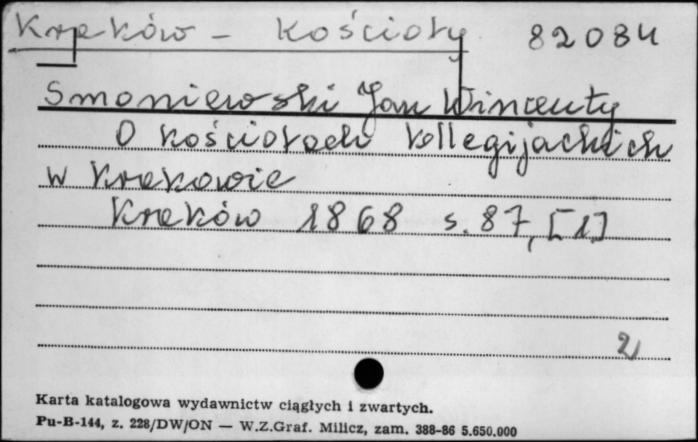 Kraków - Kościoły 82084
Smoniewski Jan Wincenty
O kościołach kollegijackich
w Krakowie
Kraków 1868 s. 87, [1]
2
Karta katalogowa wydawnictw ciągłych i zwartych.
Pu-B-144, z. 228/DW/ON — W.Z.Graf. Milicz, zam. 388-86 5.650.000